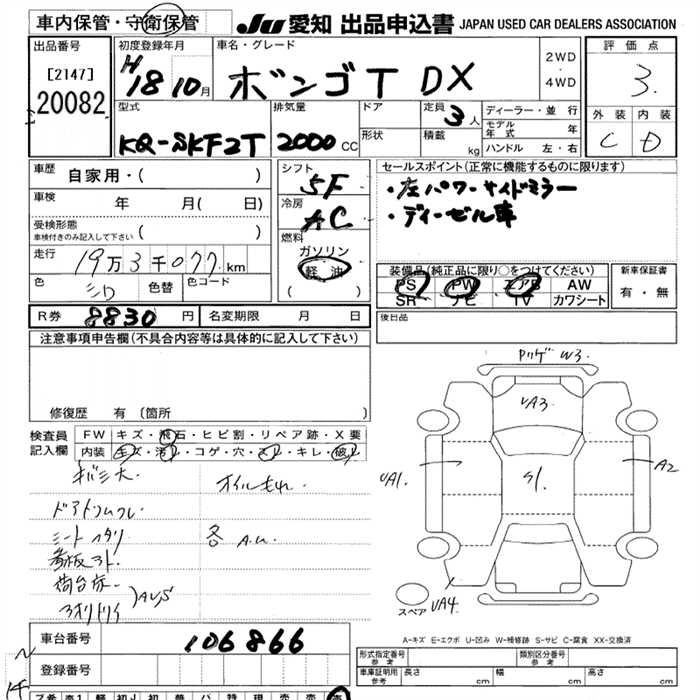 車内保管・守衛保管
JU 愛知 出品申込書 JAPAN USED CAR DEALERS ASSOCIATION
出品番号
[2147]
20082
初度登録年月
H18 10月
車名・グレード
ボンゴT DX
2WD
・
4WD
評価点
3.
外装 内装
C D
型式
KQ-SKF2T
排気量
2000 CC
ドア
形状
定員 3人
積載 kg
ディーラー・並行
モデル年式 年
ハンドル 左・右
車歴 自家用・( )
車検 年 月( 日)
受検形態
車検付きのみ記入して下さい ( )
走行 19万3千077km
色 シロ 色替 色コード
シフト
5F
冷房
AC
燃料
ガソリン
軽油
( )
セールスポイント(正常に機能するものに限ります)
・左パワーサイドミラー
・ディーゼル車
装備品(純正品に限り○をつけてください)
PS PW エアB AW
SR ナビ TV カワシート
新車保証書
有・無
R券 8830円 名変期限 月 日
後日品
注意事項申告欄(不具合内容等は具体的に記入して下さい)
修復歴 有 (箇所 )
検査員
記入欄
FW キズ・飛石・ヒビ割・リペア跡・X要
内装 キズ・汚レ・コゲ・穴・スレ・キレ・破レ
オイルもれ
ドアトリムワレ
シートヘタリ
各 A.U.
看板アト
荷台床
AUS
ワイパーキズ W3.
UA3
UA1.
S1.
A2
UA4.
スペア
A-キズ E-エクボ U-凹み W-補修跡 S-サビ C-腐食 XX-交換済
車台番号 106866
登録番号
形式指定番号 参考
類別区分番号 参考
車庫証明用 参考
長さ cm 幅 cm 高さ cm